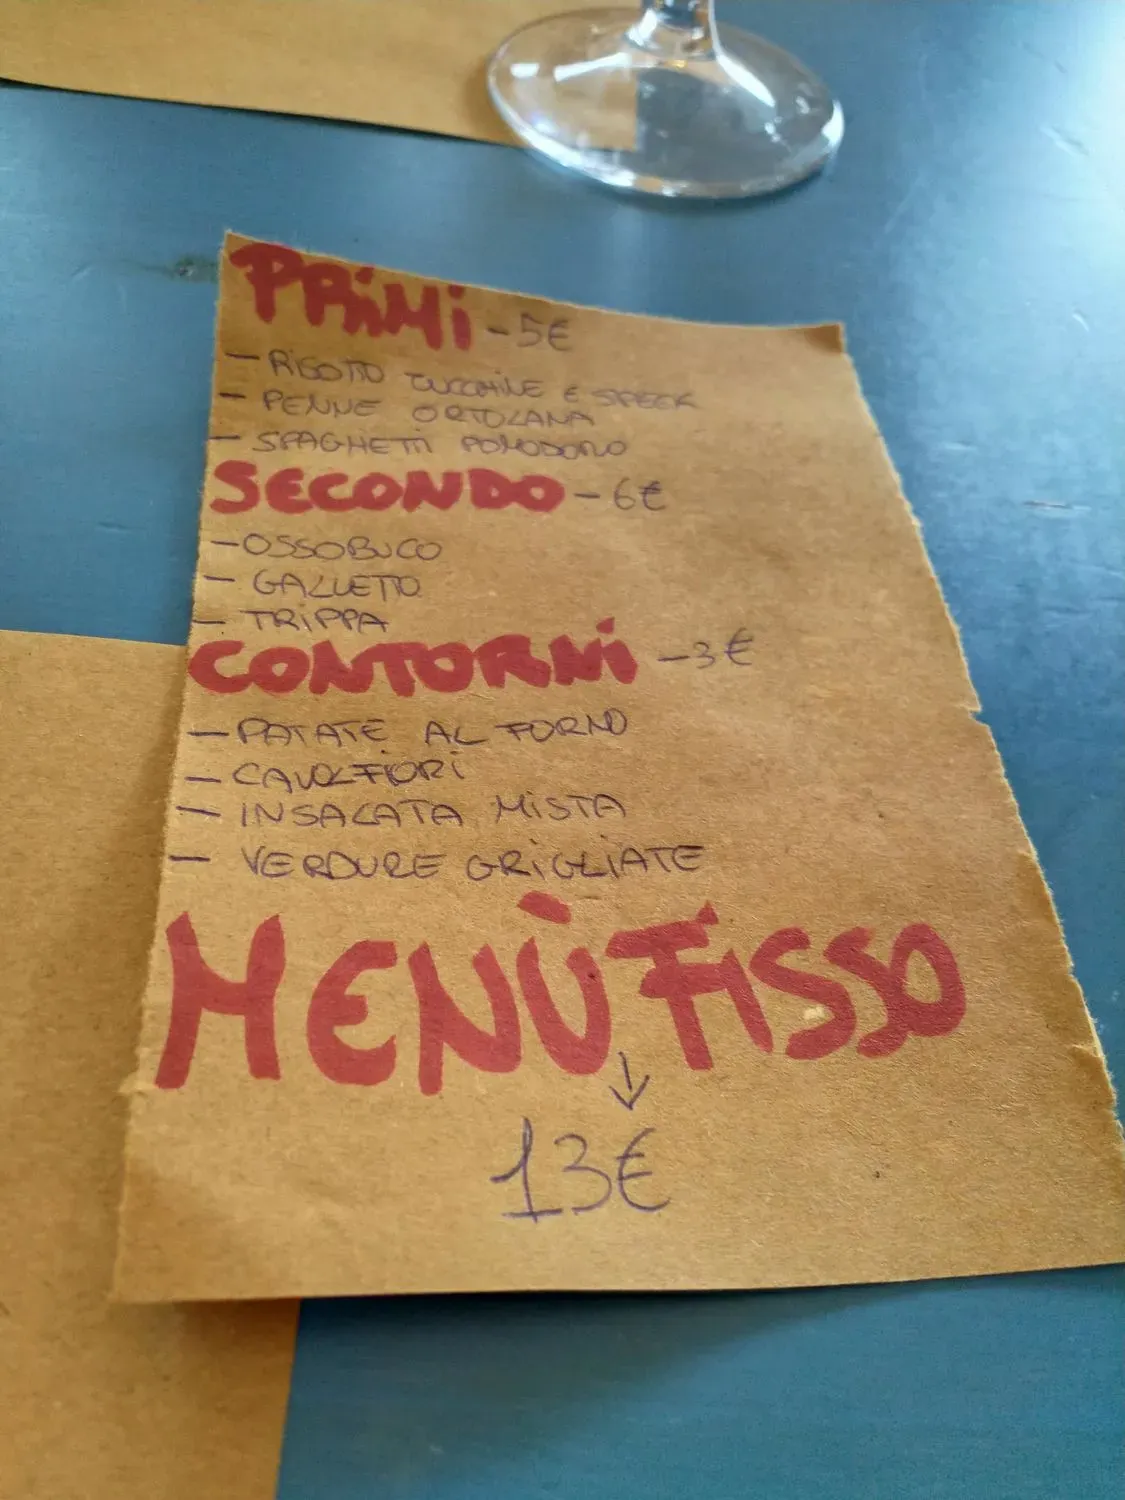 PRIMI - 5€
- RISOTTO ZUCCHINE E SPECK
- PENNE ORTOLANA
- SPAGHETTI POMODORO
SECONDO - 6€
- OSSOBUCO
- GALLETTO
- TRIPPA
CONTORNI - 3€
- PATATE AL FORNO
- CAVOLFIORI
- INSALATA MISTA
- VERDURE GRIGLIATE
MENÙ FISSO
↓
13€